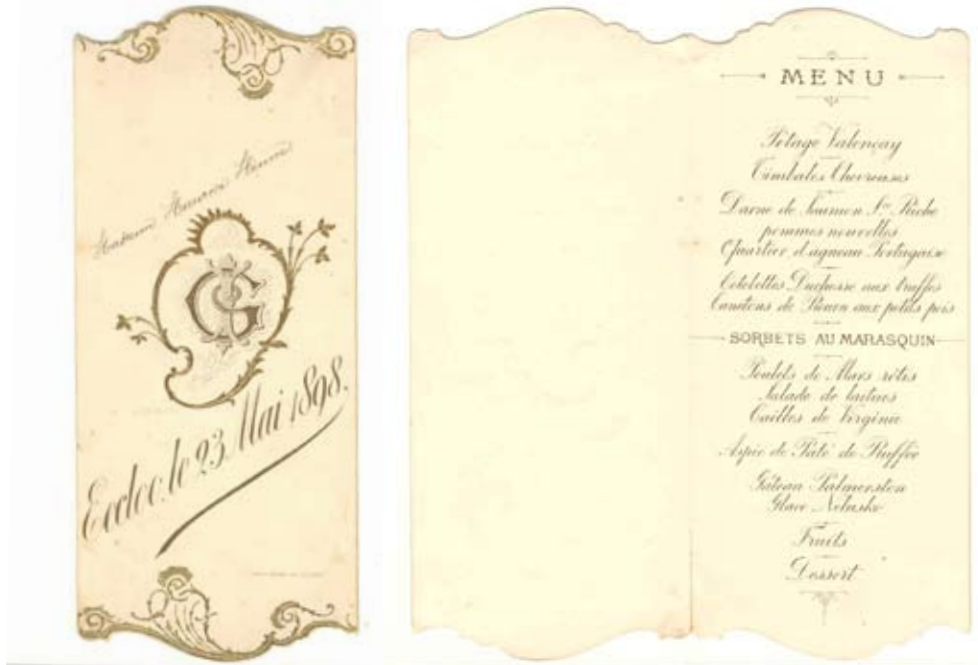 Madame Maurice
GK
Eecloo, le 23 Mai 1898.
MENU
Potage Valençay
Timbales Chevreuses
Darne de Saumon Ste Riche
pommes nouvelles
Quartier d'agneau Portugaise
Côtelettes Duchesse aux truffes
Canetons de Rouen aux petits pois
SORBETS AU MARASQUIN
Poulets de Mars rôtis
Salade de laitues
Cailles de Virginie
Aspic de Pâté de Ruffée
Gâteau Palmerston
Glace Nelusko
Fruits
Dessert